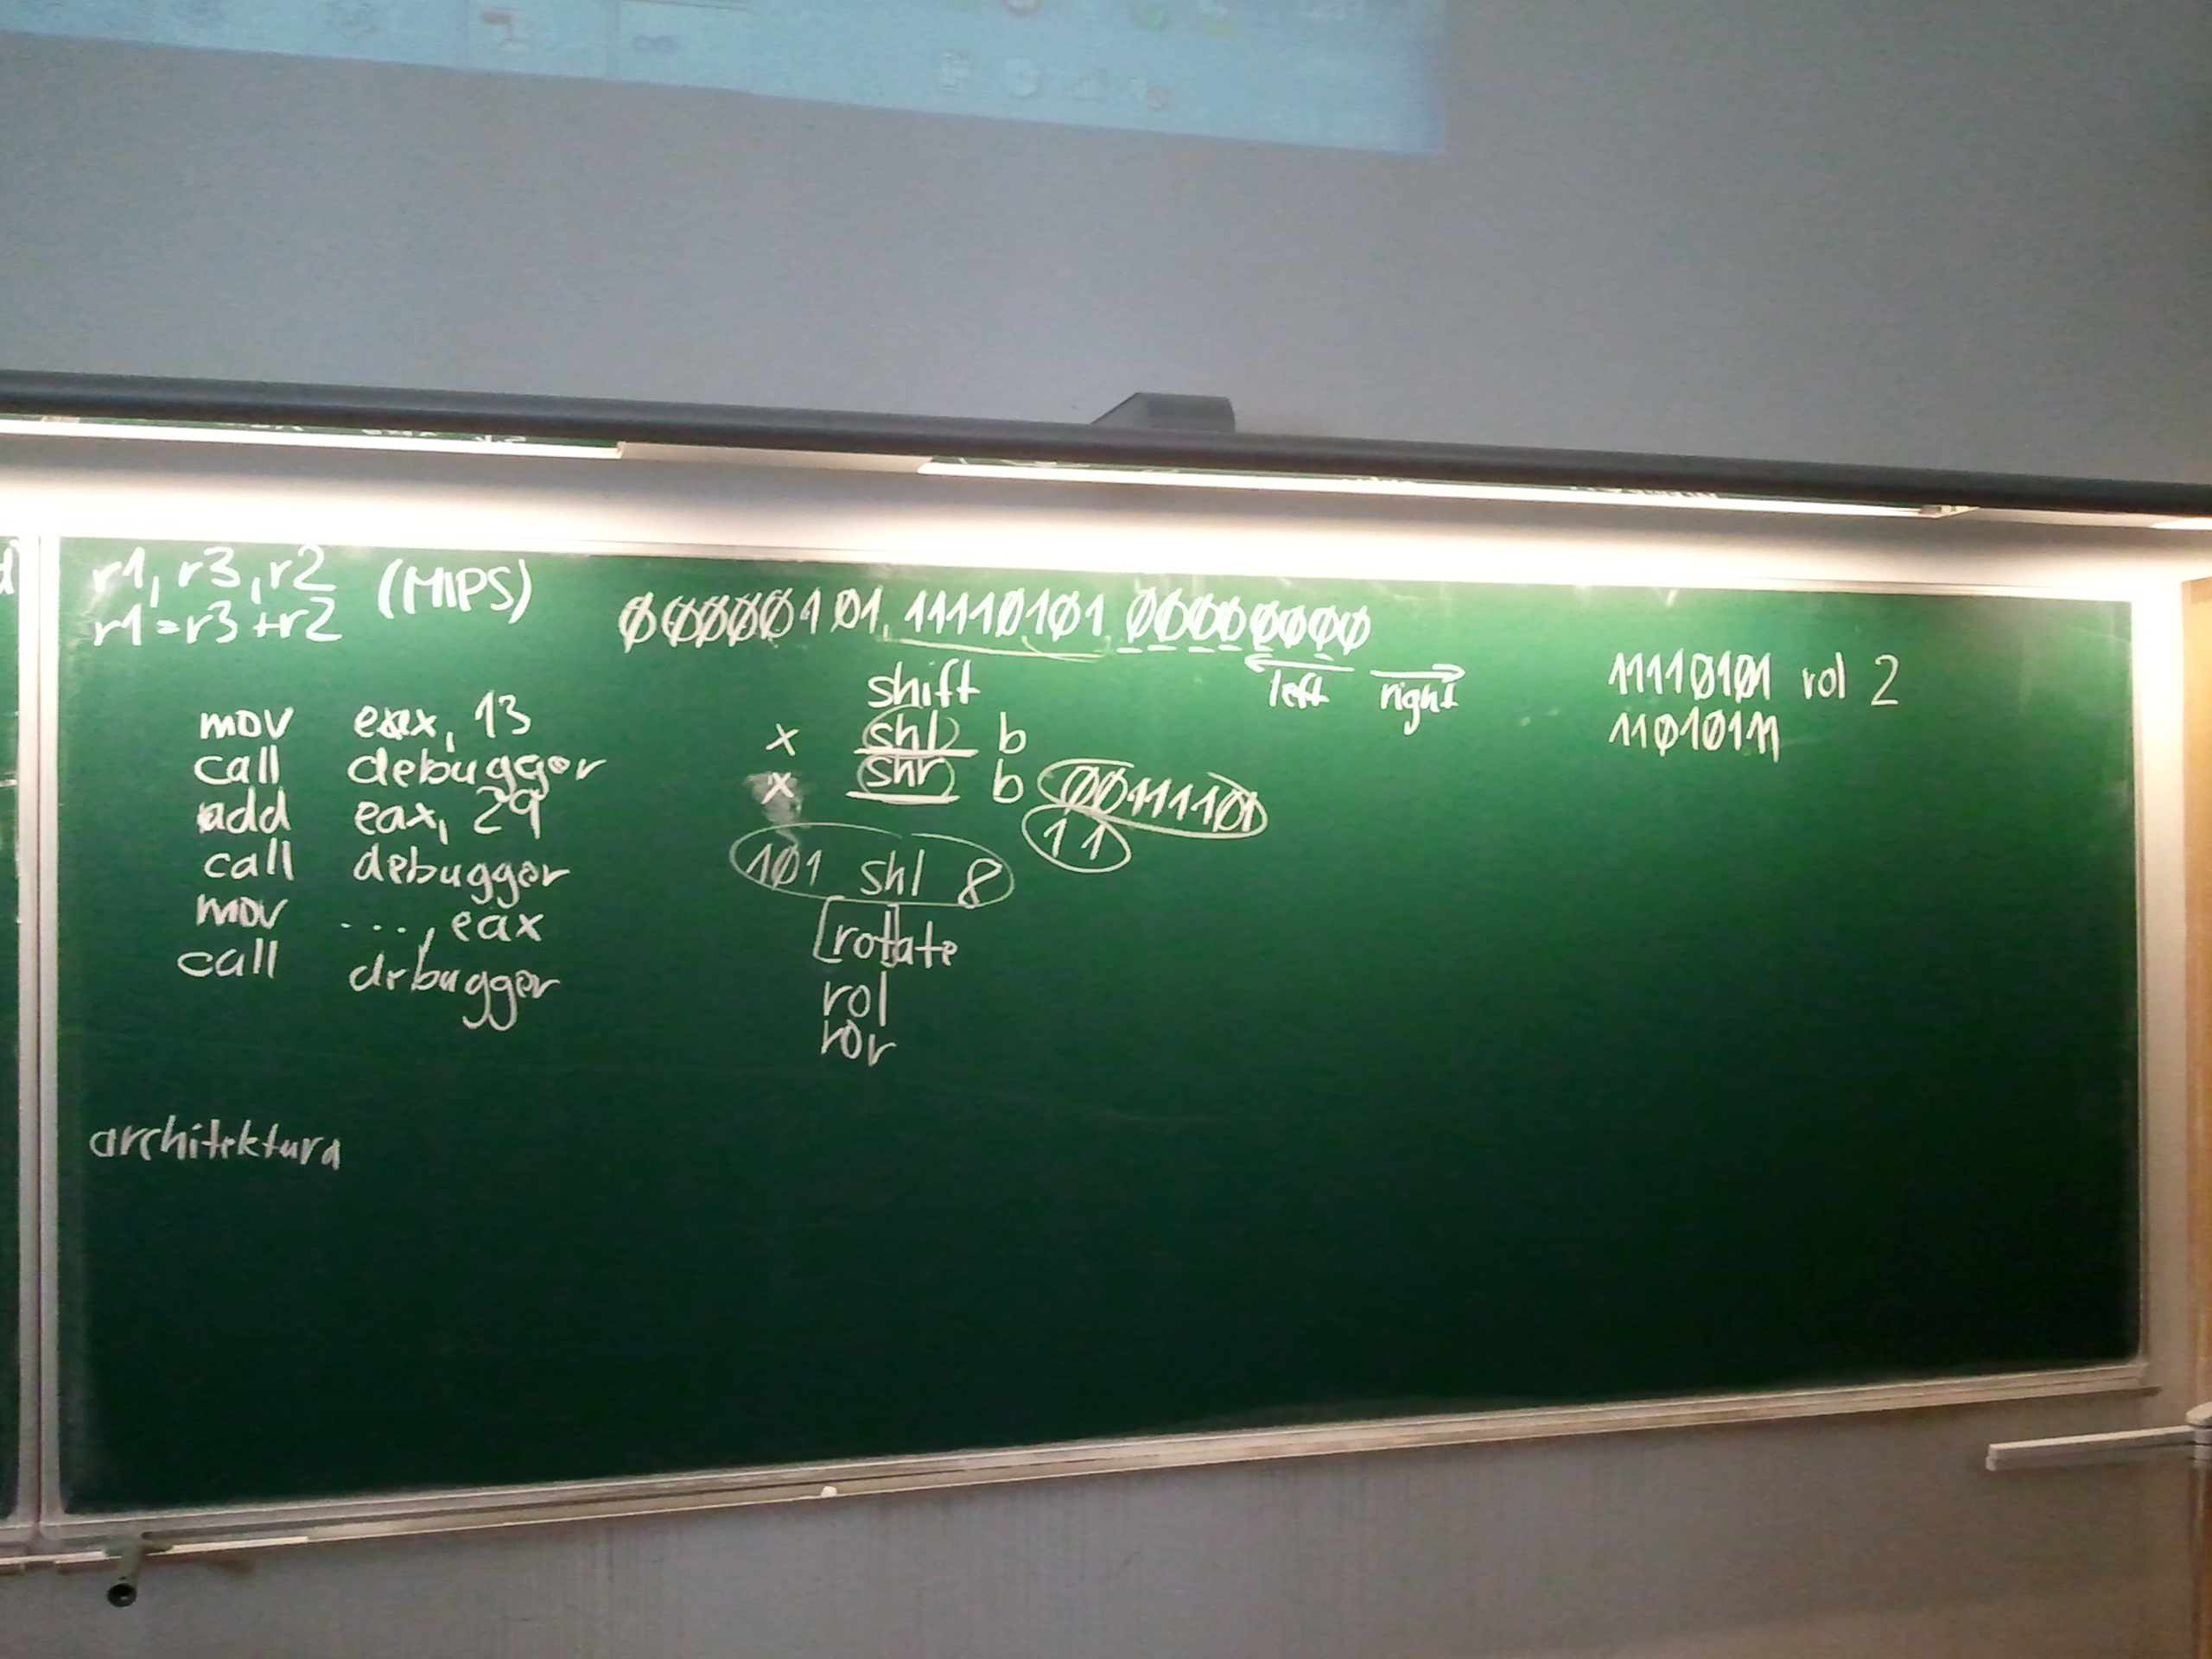 r1, r3, r2
r1=r3+r2 (MIPS)
mov eax, 13
call debugger
add eax, 29
call debugger
mov ...., eax
call debugger
architektura
00000101 11110101 00000000
left right
shift
x shl b
x shr b 00111101
11
101 shl 8
[rot]ate
rol
ror
11110101 rol 2
11010111